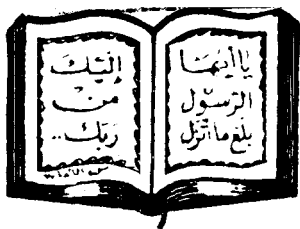 يا أيها
الرسول
بلغ ما أنزل
إليك
من
ربك ..